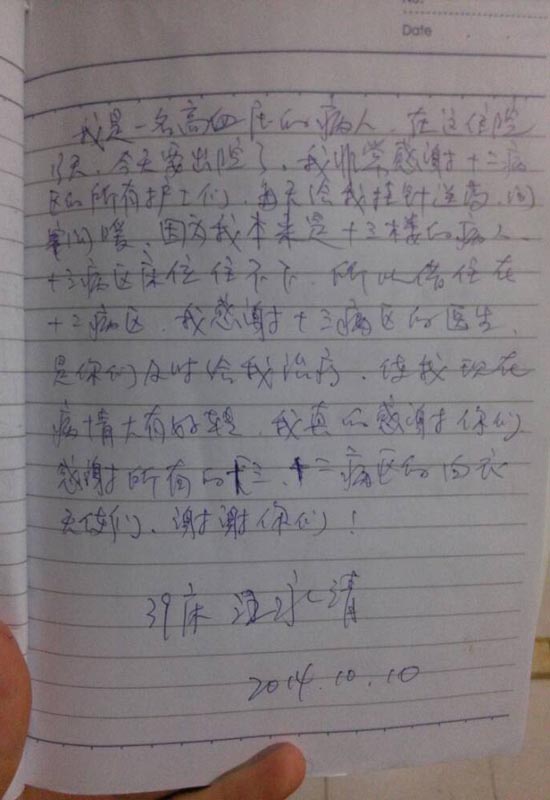 No:
Date
我是一名高血压的病人，在这住院
天，今天要出院了，我非常感谢十二病
区的所有护士们，每天给我挂针送药，问
寒问暖，因为我本来是十三楼的病人
十三病区床位住不下，所以借住在
十二病区，我感谢十三病区的医生，
是你们及时给我治疗，使我现在
病情大有好转，我真的感谢你们
感谢所有的十三、十二病区的白衣
天使们，谢谢你们！
39床 清
2014.10.10